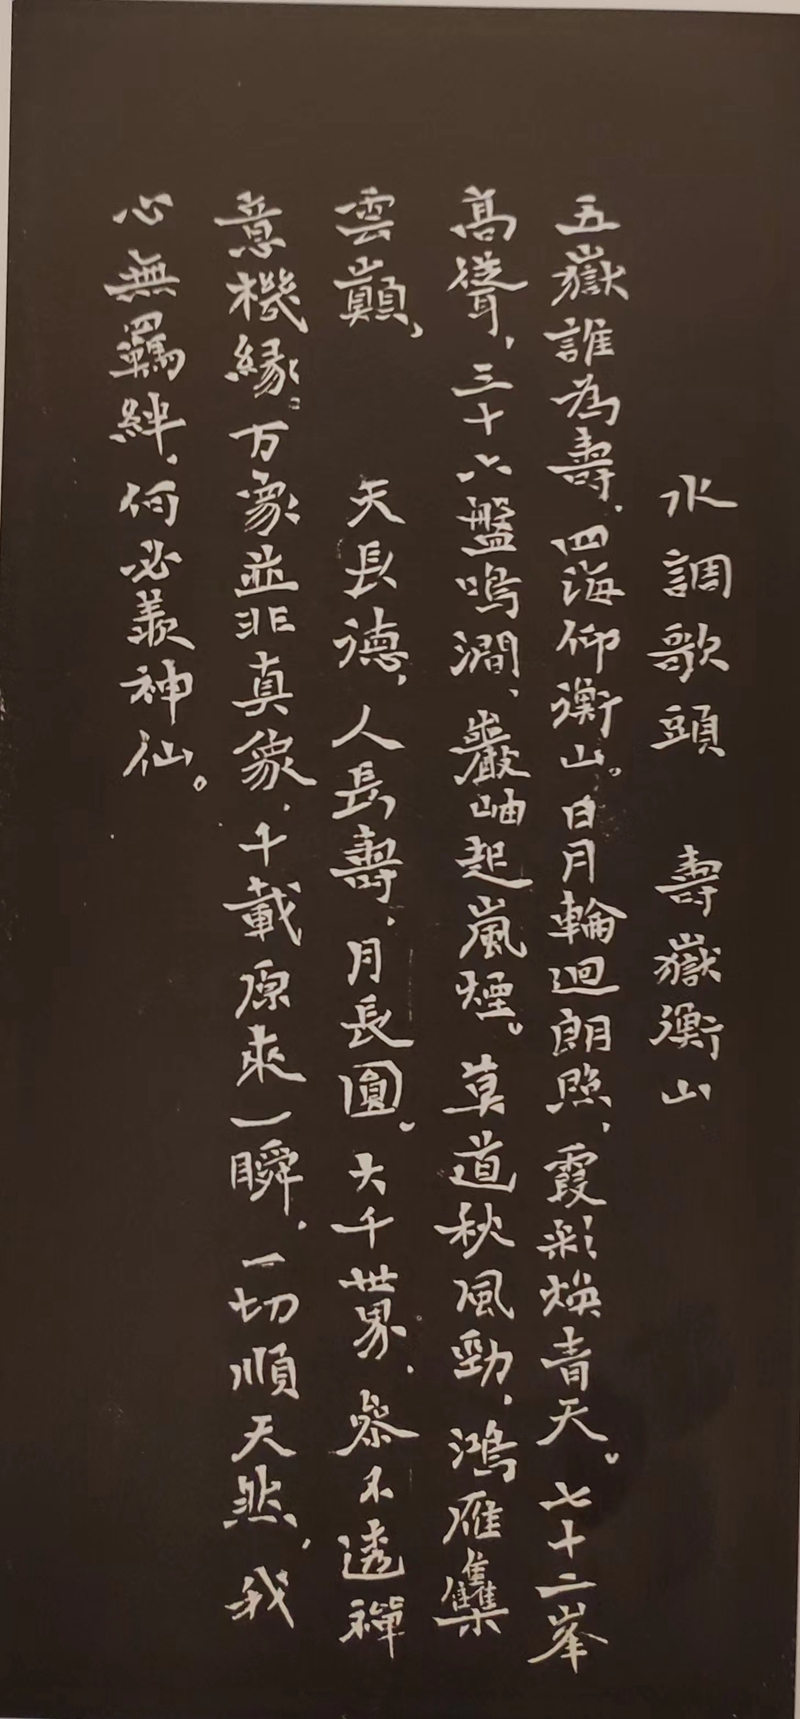 水調歌頭　壽嶽衡山
五嶽誰為壽，四海仰衡山。日月輪迴朗照，霞彩煥青天。七十二峯
高聳，三十六盤鳴澗，巖岫起嵐煙。莫道秋風勁，鴻雁集
雲巔，　天長德，人長壽，月長圓。大千世界，參不透禪
意機緣。万象並非真象，千載原來一瞬，一切順天然，我
心無羈絆，何必羨神仙。